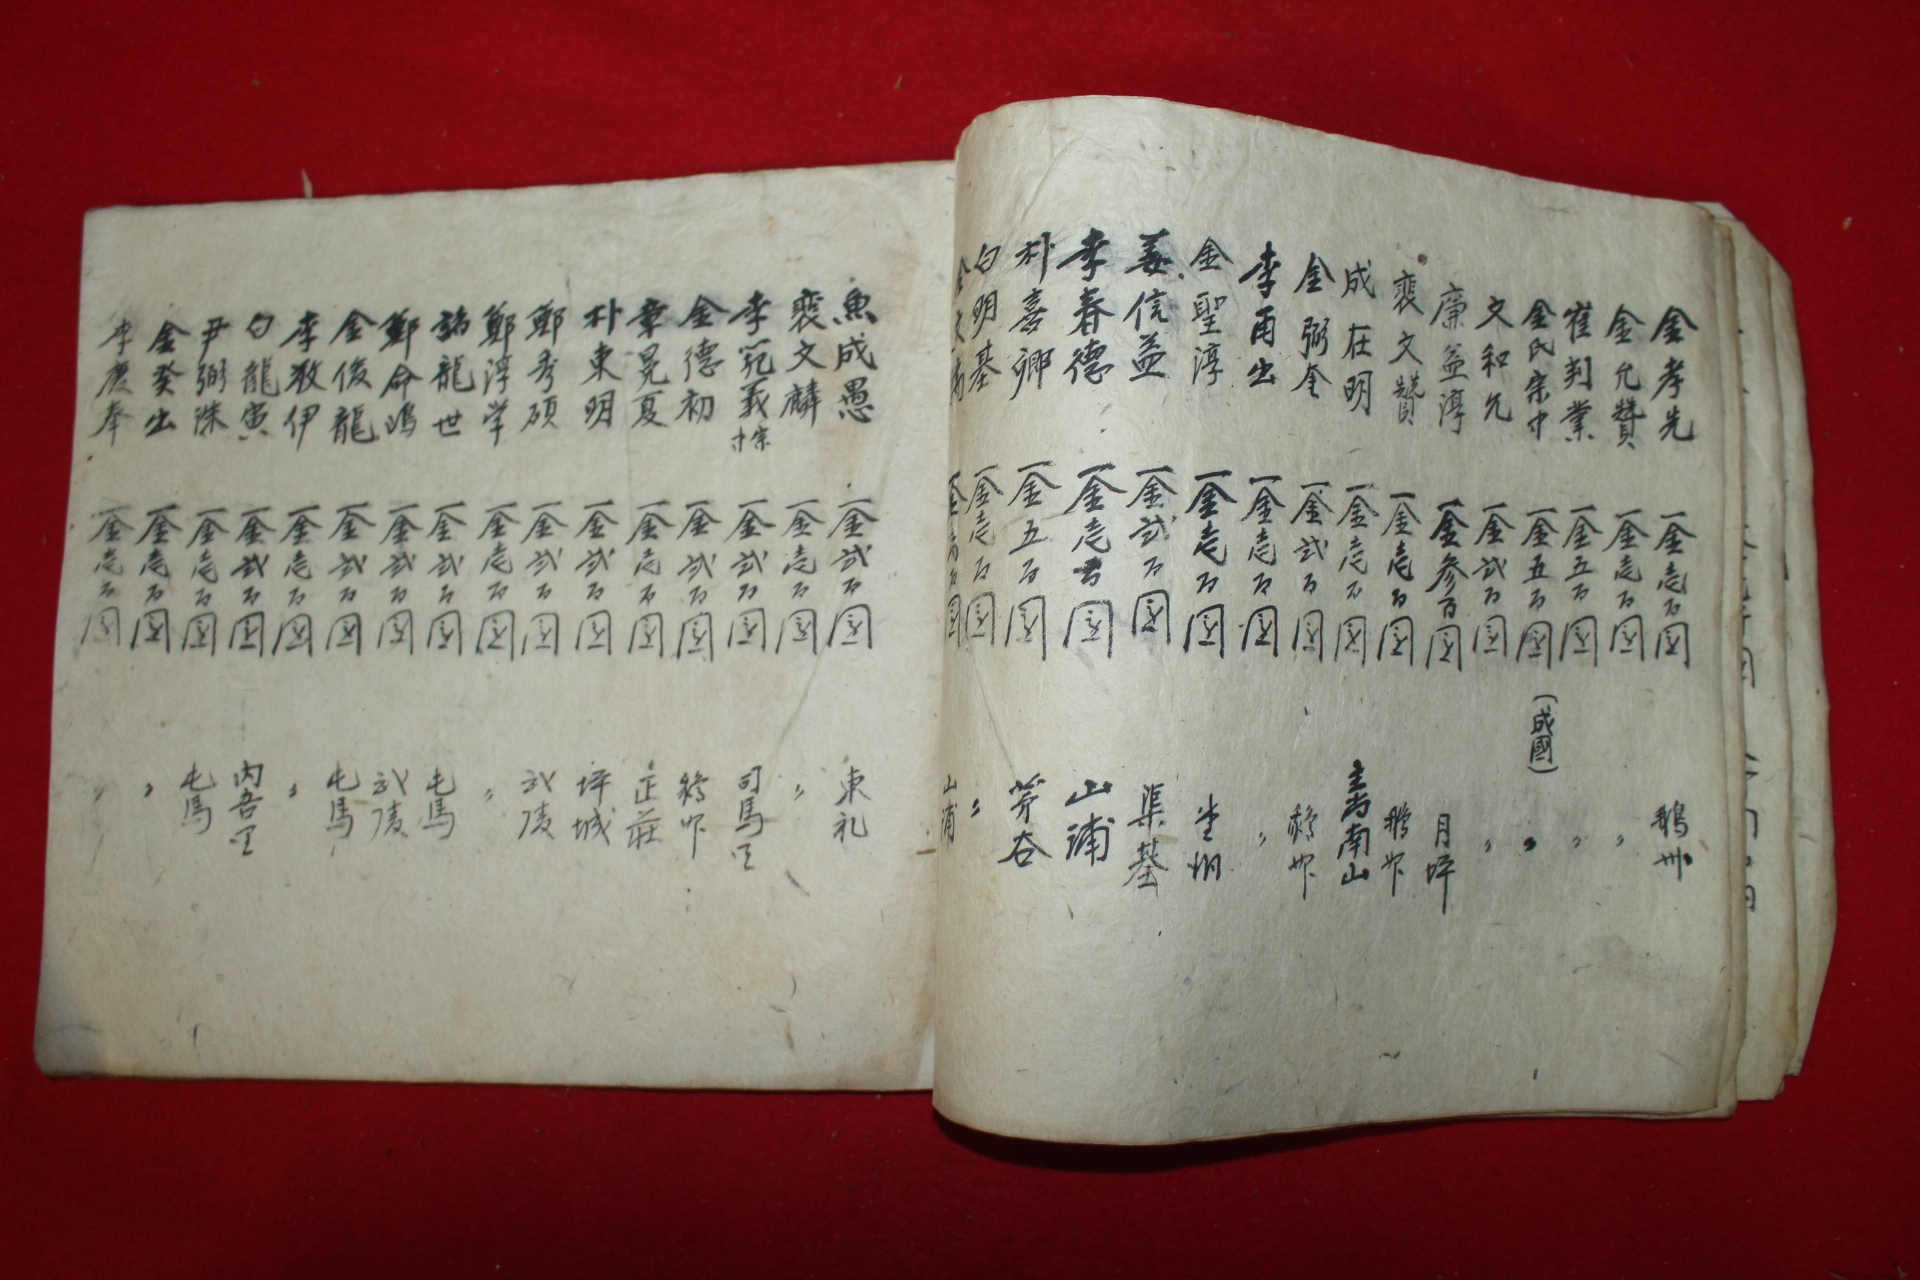 金孝先 一金壱百圓 鵝州
金允贊 一金壱百圓 〃
崔判業 一金五百圓 〃
金氏宗中 一金五百圓 (成國) 〃
文和允 一金弐百圓 〃
廉益淳 一金参百圓 月坪
裵文贊 一金壱百圓
成在明 一金壱百圓 南山
金弼奎 一金弐百圓
李甬出 一金壱百圓 〃
金聖淳 一金壱百圓
姜信益 一金弐百圓 渠基
李春德 一金壱百圓 山浦
朴喜卿 一金五百圓 茅谷
白明基 一金壱百圓 〃
金文 一金 百圓 山浦
魚成愚 一金弐百圓 東礼
裵文麟 一金壱百圓 〃
李範義 一金弐百圓 司馬里
金德初 一金弐百圓
章晃夏 一金壱百圓 正莊
朴東明 一金弐百圓 坪城
鄭秀碩 一金弐百圓 武陵
鄭淳学 一金壱百圓 〃
諸龍世 一金弐百圓 屯馬
鄭命鴻 一金弐百圓 武陵
金俊龍 一金弐百圓 屯馬
李敎伊 一金壱百圓 〃
白龍寅 一金弐百圓 内吾里
尹弼洙 一金壱百圓 屯馬
金癸出 一金壱百圓 〃
李慶奉 一金壱百圓 〃